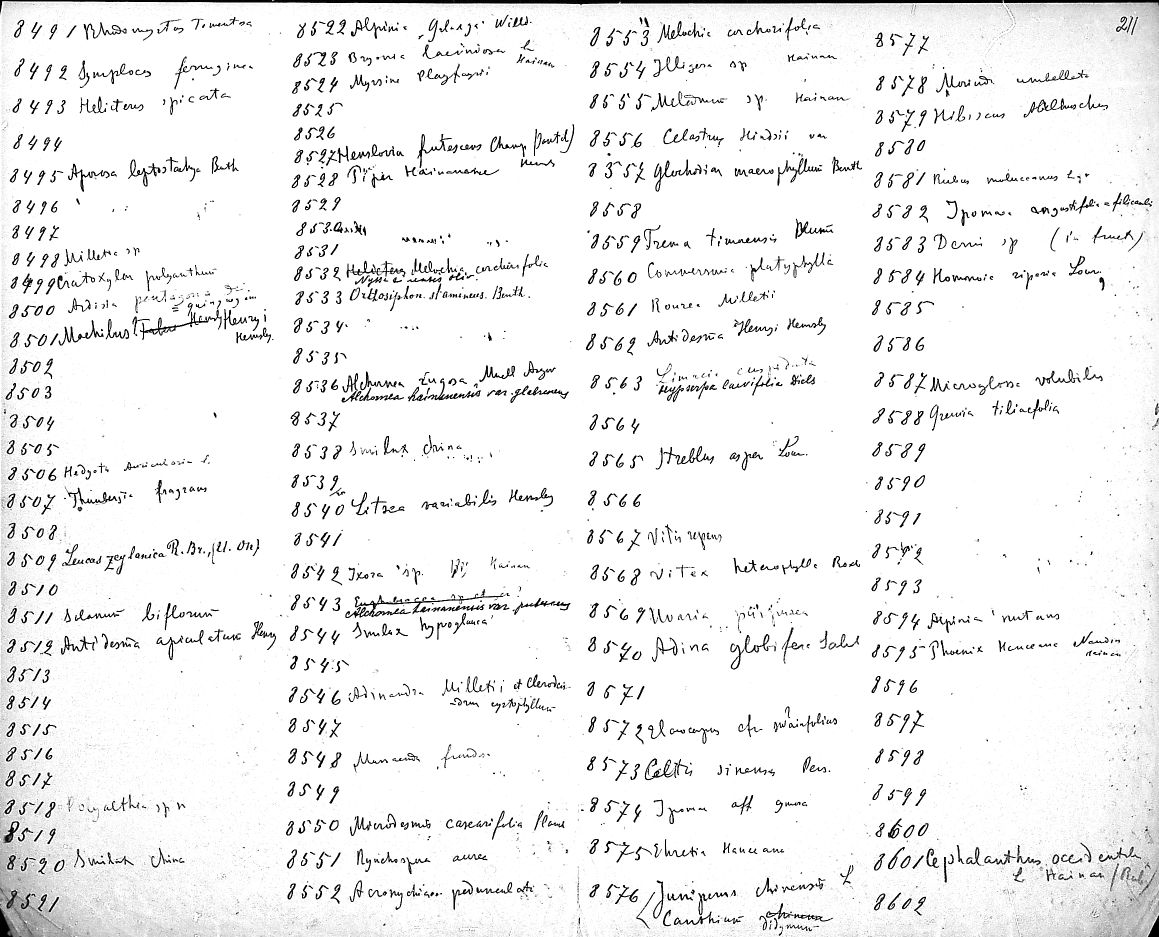 211
8491 Rhodomyrtus Tomentosa
8492 Symplocos ferruginea
8493 Helicteres spicata
8494
8495 Aporosa leptostachya Benth
8496 " "
8497
8498 Milletia sp
8499 Cratoxylon polyanthum
8500 Ardisia pentagona
= quinquegona
8501 Machilus? Henryi
Hemsley
8502
8503
8504
8505
8506 Hedyotis Auricularia L.
8507 Thunbergia fragrans
8508
8509 Leucas zeylanica R. Br.,
8510
8511 Solanum biflorum
8512 Antidesma apiculatum Hemsy
8513
8514
8515
8516
8517
8518 Polyalthia sp n
8519
8520 Smilax China
8521
8522 Alpinia "Galanga" Willd.
8523 Bryonia laciniosa L
Hainan
8524 Myrsine Playfairii
8525
8526
8527 Henslovia frutescens Champ
8528 Piper Hainanense Hems
8529
8530
8531
8532 Helicteres Melochia corchorifolia
8533 Orthosiphon stamineus. Benth.
8534
8535
8536 Alchornea rugosa, Muell Argov
Alchornea hainanensis var. glabrescens
8537
8538 Smilax china
8539
8540 Litsea variabilis Hemsley
8541
8542 Ixora sp. Hainan
8543 Euphorbiacea sp
Alchornea hainanensis var. pubescens
8544 Smilax hypoglauca
8545
8546 Adinandra Milletii et Clerodendron cyrtophyllum
8547
8548 Mussaenda frondosa
8549
8550 Microdesmis casearifolia Planc
8551 Rynchospora aurea
8552 Acronychia pedunculata
8553 Melochia corchorifolia
8554 Illigera sp Hainan
8555 Melodinus sp. Hainan
8556 Celastrus Hindsii var
8557 Glochidion macrophyllum Benth
8558
8559 Trema timorensis Blume
8560 Commersonia platyphylla
8561 Rourea Milletii
8562 Antidesma Henryi Hemsley
8563 Limacia cuspidata
Hypserpa laevifolia Diels
8564
8565 Streblus asper Lour.
8566
8567 Vitis repens
8568 Vitex heterophylla Roxb
8569 Uvaria
8570 Adina globifera Salisb
8571
8572 Elaeocarpus cfr
8573 Celtis sinensis Pers.
8574 Ipomea aff
8575 Ehretia Hanceana
8576 Juniperus chinensis L
Canthium chinense
didymum
8577
8578 Morinda umbellata
8579 Hibiscus Abelmoschus
8580
8581 Rubus moluccanus L.
8582 Ipomoea angustifolia = filicaulis
8583 Derris sp (in fruct)
8584 Homonoia riparia Lour
8585
8586
8587 Microglossa volubilis
8588 Grewia tiliaefolia
8589
8590
8591
8592
8593
8594 Alpinia nutans
8595 Phoenix Hanceana Naudin
Hainan
8596
8597
8598
8599
8600
8601 Cephalanthus occidentalis
L Hainan
8602